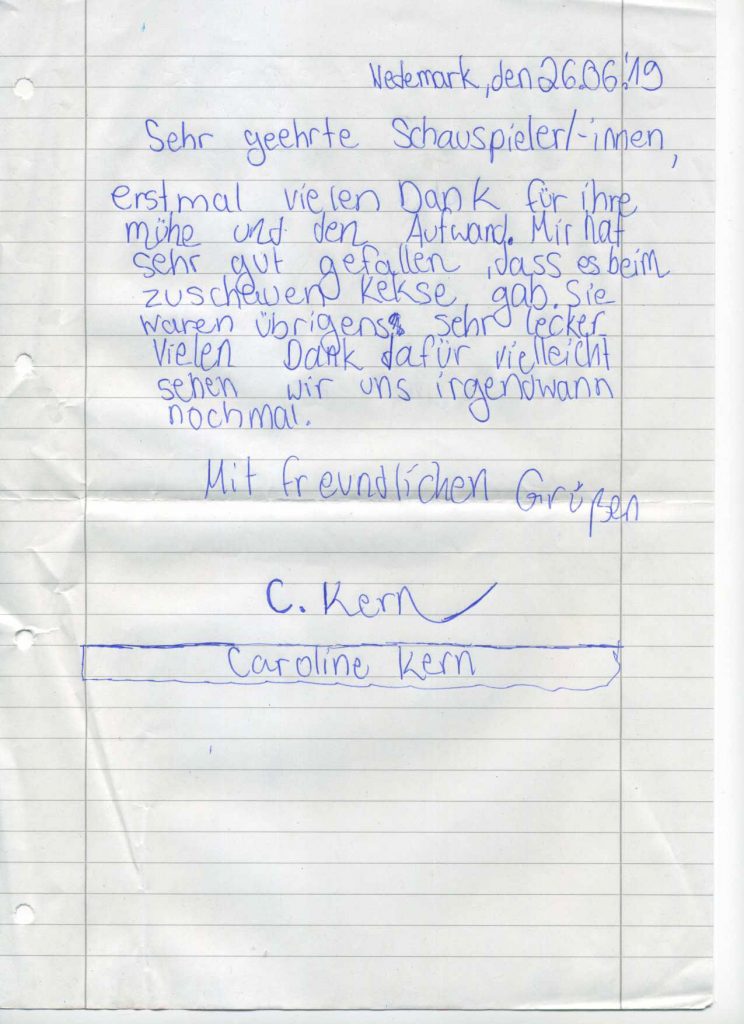 Wedemark, den 26.06.'19
Sehr geehrte Schauspieler/-innen,
erstmal vielen Dank für ihre
mühe und den Aufwand. Mir hat
sehr gut gefallen, dass es beim
zuschewen Kekse gab. Sie
waren übrigens sehr lecker
Vielen Dank dafür vielleicht
sehen wir uns irgendwann
nochmal.
Mit freundlichen Grüßen
C. Kern
Caroline Kern